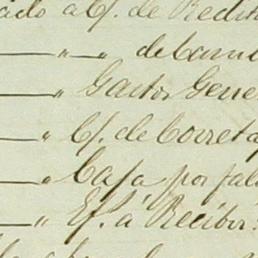 ado a C/. de Redit
" " de Cam
" Gastos Gene
" C/. de Correta
" Caja por fal
" Ef. á Recibir